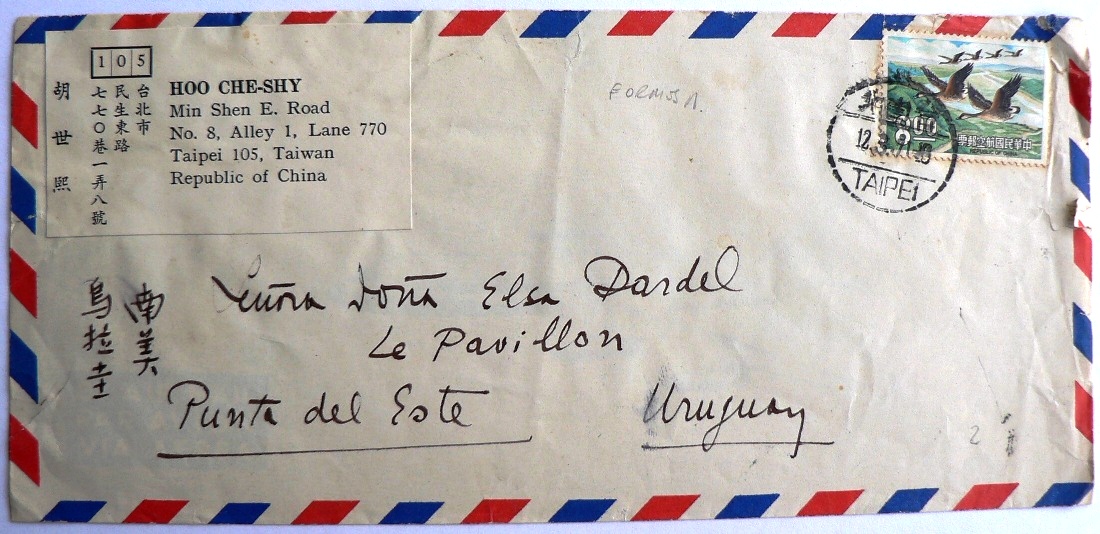 105
台北市
民生東路
七七〇巷一弄八號
胡世熙
HOO CHE-SHY
Min Shen E. Road
No. 8, Alley 1, Lane 770
Taipei 105, Taiwan
Republic of China
FORMOSA.
8.00
票郵空航國民華中
REPUBLIC OF CHINA
TAIPEI
南美
烏拉圭
Señora Doña Elsa Dardel
Le Pavillon
Punta del Este
Uruguay
2